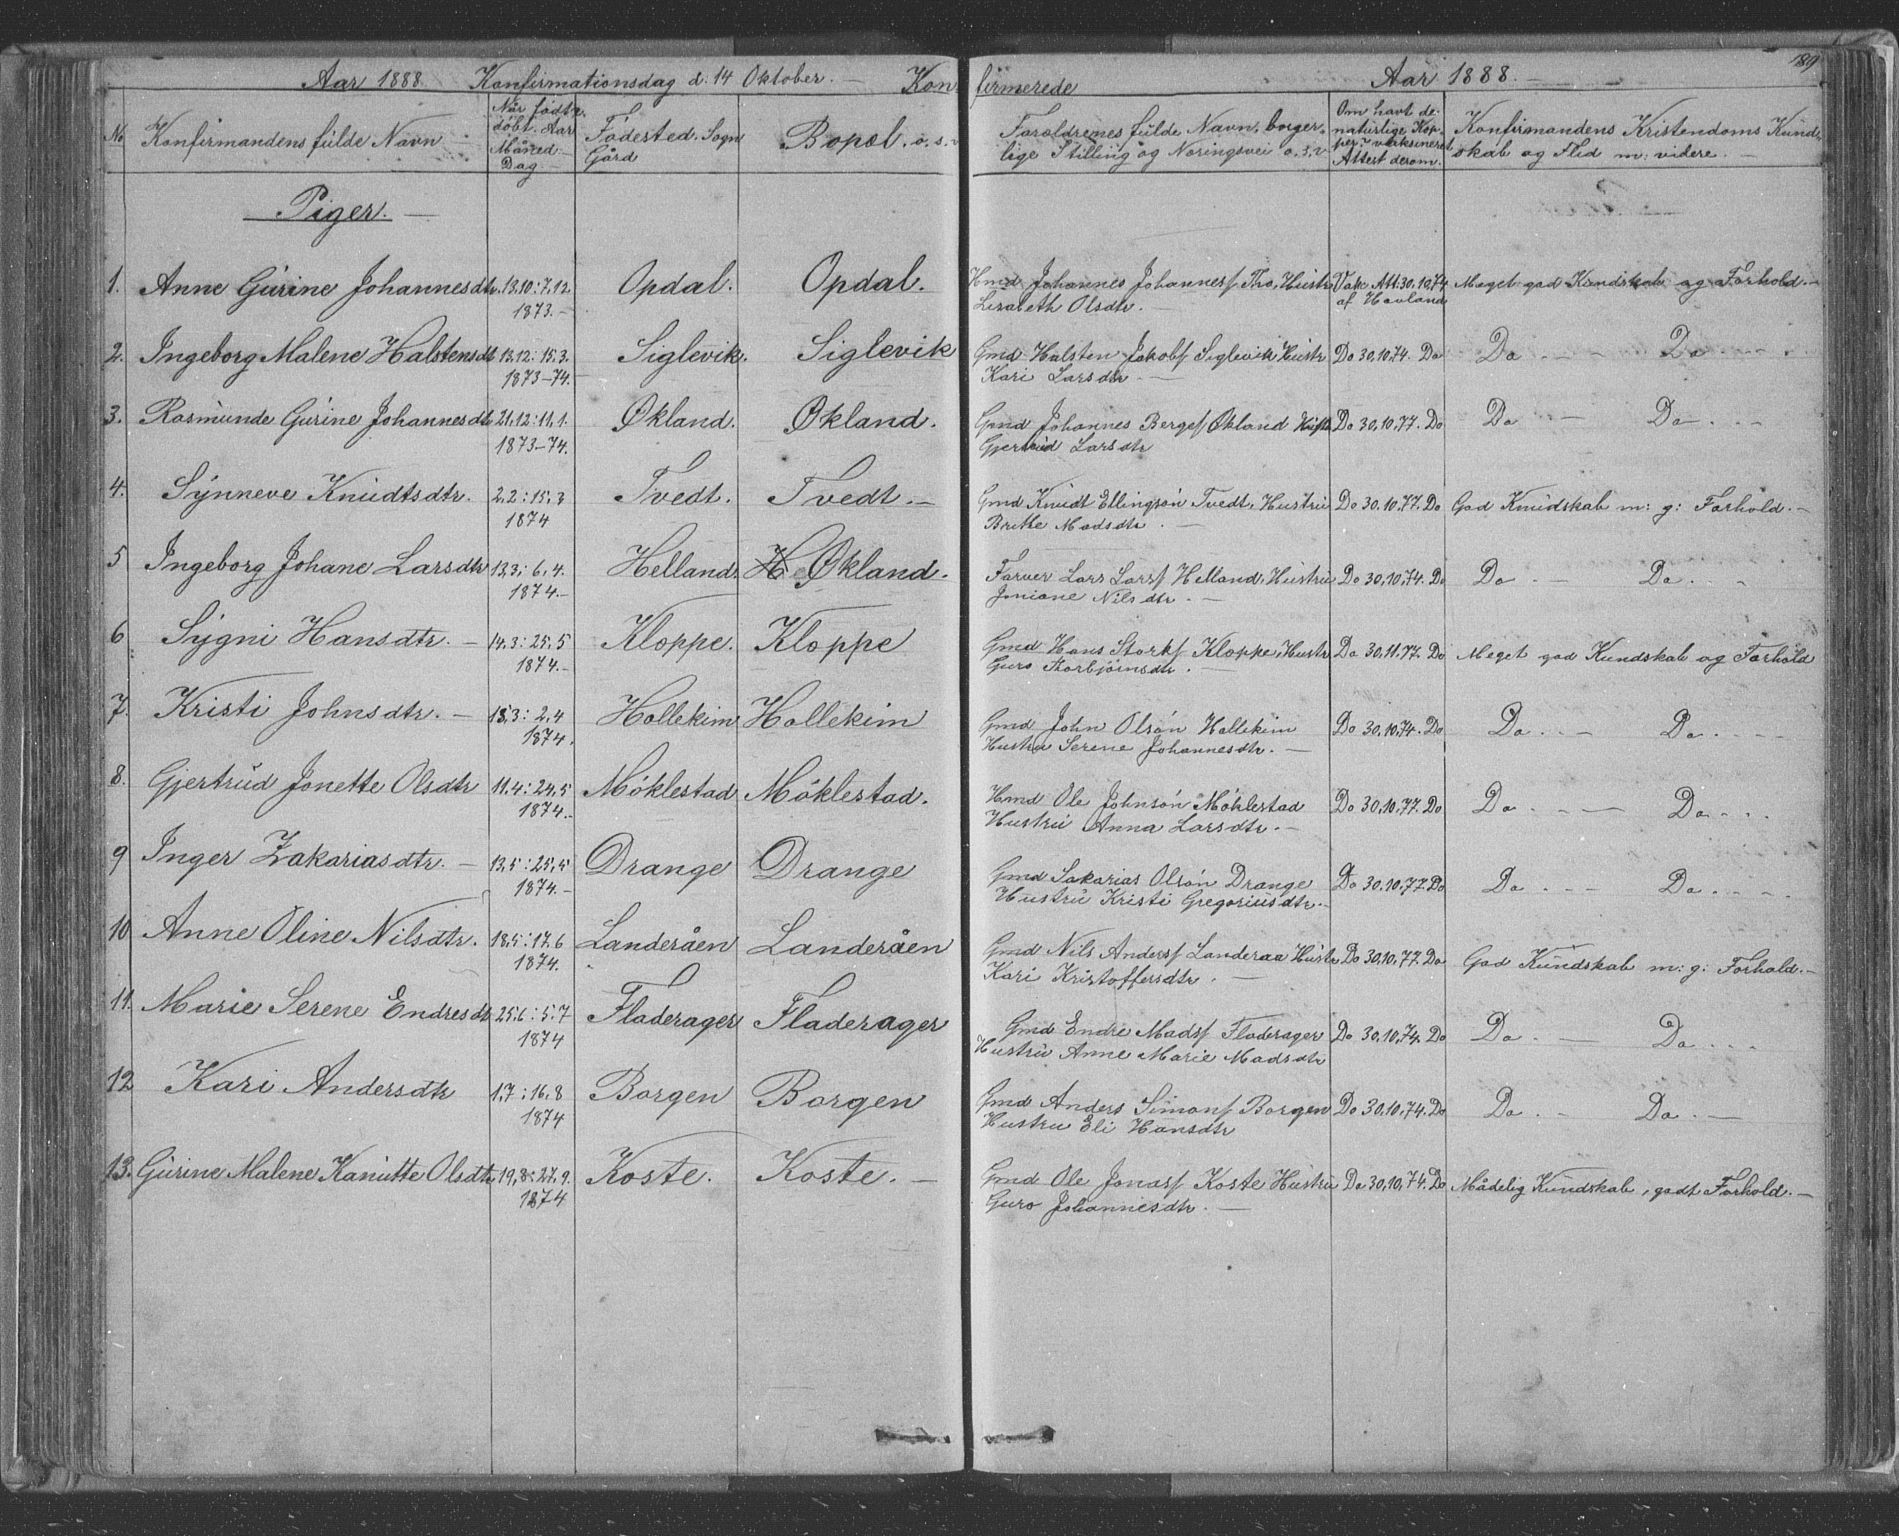 Aar 1888. Konfirmationsdag d: 14 Oktober. — Konfirmerede Aar 1888. — 189
No Konfirmandens fulde Navn
Når født, døbt. Aar Måned Dag
Fødested. Sogn Gård
Bopæl. o. s. v
Forældrenes fulde Navn, borgerlige Stilling og Næringsvei o. s. v
Om havt de naturlige Kopper, vaksineret Attest derom.
Konfirmandens Kristendoms Kundskab og Flid m: videre. —
Piger. —
1. Anne Gurine Johannesdtr. 13.10:7.12. Opdal. Opdal. Hmd Johannes Johannesf Tho, Hustr Vak. Att. 30.10.74 Meget god Kundskab og Forhold. —
1873. — Lisabeth Olsdtr. — af Havland
2. Ingeborg Malene Halstensdt 13.12:15.3. Siglevik. Siglevik Gmd Halsten Jakobf Siglevik Hustr Do 30.10.74. Do Do - - - Do - - -
1873-74. Kari Larsdtr. —
3. Rasmunde Gurine Johannesdtr 21.12:11.1. Økland. Økland. Gmd Johannes Bergef Økland Hust Do 30.10.77. Do Do - Do - - -
1873-74. Gjertrud Larsdtr
4. Synneve Knudtsdtr. 2.2:15.3 Tvedt. Tvedt. — Gmd Knudt Ellingsøn Tvedt, Hustru Do 30.10.77. Do God Kundskab m: g: Forhold. —
1874 Brithe Madsdtr. —
5 Ingeborg Johane Larsdtr 13.3: 6.4. Helland. Økland. Farver Lars Larsf Helland, Hustru Do 30.10.74. Do Do - Do - -
1874. — Joniane Nilsdtr. —
6 Sygni Hansdtr. — 14.3:25.5 Kloppe. Kloppe Gmd Hans Storkf Kloppe, Hustr Do 30.11.77. Do Meget god Kundskab og Forhold
1874. — Guro Torbjørnsdtr. —
7. Kristi Johnsdtr. — 15.3: 2.4 Hollekim Hollekim Gmd John Olsøn Hollekim Do 30.10.74. Do Do. - - Do. - - -
1874. Hustru Serene Johannesdtr. —
8. Gjertrud Jonette Olsdtr 11.4:24.5 Møklestad Møklestad. Hmd Ole Johnsøn Møklestad Do 30.10.77. Do Do. - - Do. - -
1874. Hustru Anna Larsdtr. —
9 Inger Zakariasdtr. — 13.5:25.5 Drange Drange Gmd Sakarias Olsøn Drange Do 30.10.77. Do Do. - - Do. - - -
1874. — Hustru Kristi Gregoriusdtr.
10 Anne Oline Nilsdtr. 18.5:17.6 Landeråen Landeråen Gmd Nils Andersf Landeraa Hustr Do 30.10.77. Do God Kundskab m: g: Forhold. —
1874. Kari Kristoffersdtr. —
11. Marie Serene Endresdtr 25.6:5.7 Fladerager Fladerager Gmd Endre Madsf Fladerager Do 30.10.74. Do Do. - Do. - -
1874 Hustru Anne Marie Madsdtr
12 Kari Andersdtr 1.7:16.8 Borgen Borgen Gmd Anders Simonf Borgen Do 30.10.74. Do Do. - Do. —
1874 Hustru Eli Hansdtr
13. Gurine Malene Kanutte Olsdtr 19.8:27.9. Koste. Koste. — Gmd Ole Jonasf Koste Hustru Do 30.10.74. Do Mådelig Kundskab, godt Forhold. —
1874 Guro Johannesdtr. —